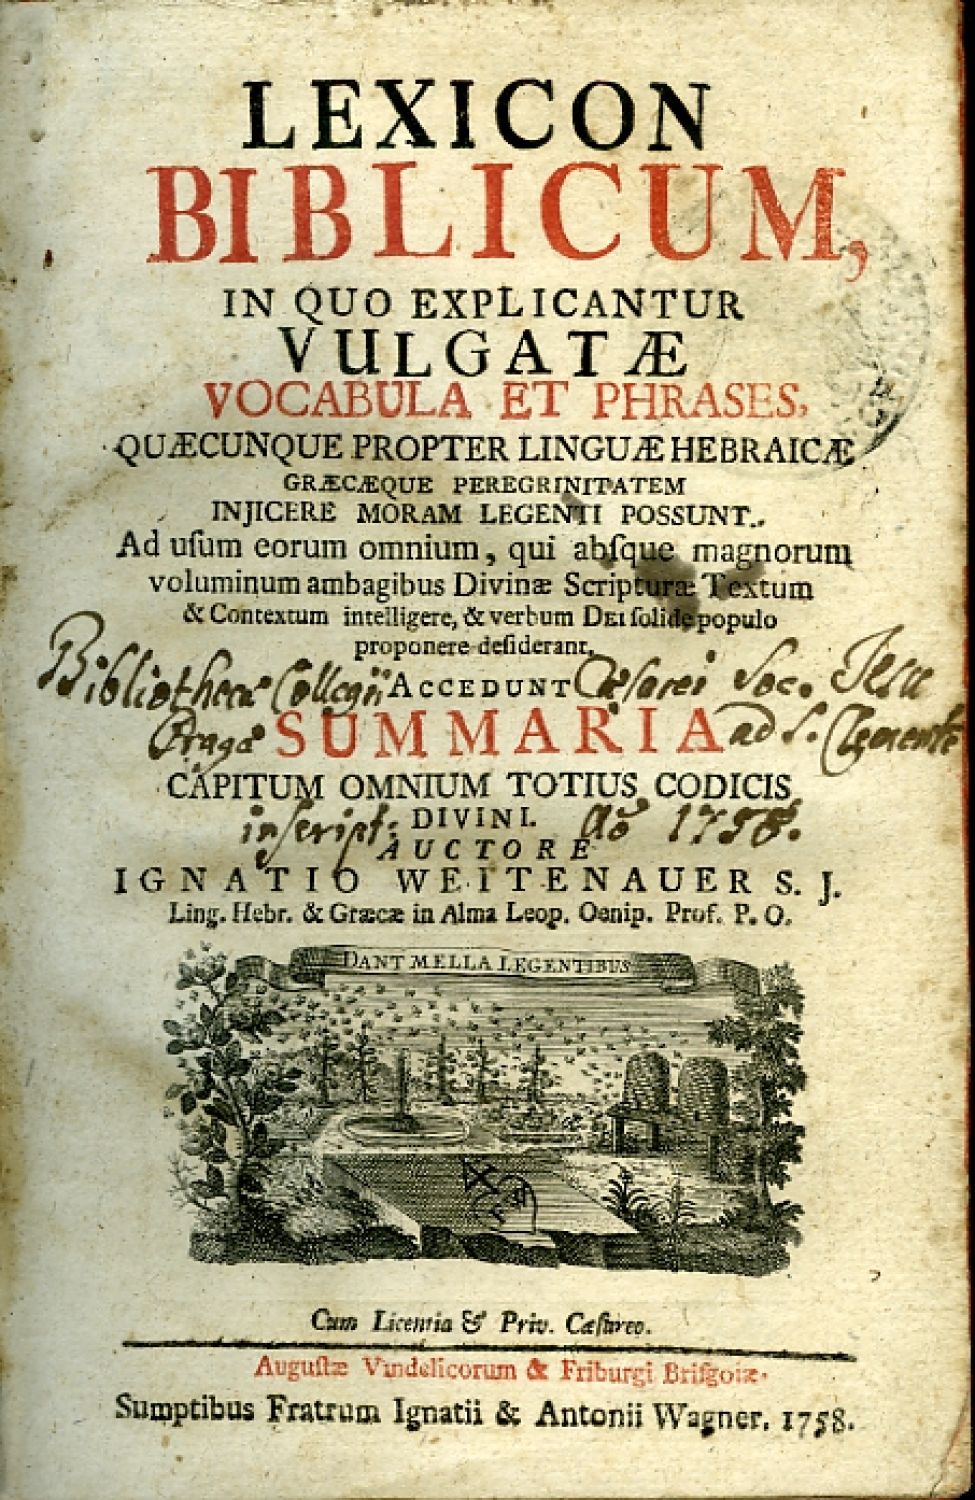 LEXICON
BIBLICUM,
IN QUO EXPLICANTUR
VULGATÆ
VOCABULA ET PHRASES,
QUÆCUNQUE PROPTER LINGUÆ HEBRAICÆ
GRÆCÆQUE PEREGRINITATEM
INJICERE MORAM LEGENTI POSSUNT.
Ad uſum eorum omnium, qui abſque magnorum
voluminum ambagibus Divinæ Scripturæ Textum
& Contextum intelligere, & verbum DEI ſolide populo
proponere deſiderant,
Bibliothecæ Collegii ACCEDUNT Cæsarei Soc. Jesu
Pragæ SUMMARIA ad S. Clementē
CAPITUM OMNIUM TOTIUS CODICIS
inscript: DIVINI. Aō 1758.
AUCTORE
IGNATIO WEITENAUER S. J.
Ling. Hebr. & Græcæ in Alma Leop. Oenip. Prof. P. O.
DANT MELLA LEGENTIBUS
Cum Licentia & Priv. Cæſareo.
Auguſtæ Vindelicorum & Friburgi Briſgoiæ.
Sumptibus Fratrum Ignatii & Antonii Wagner. 1758.